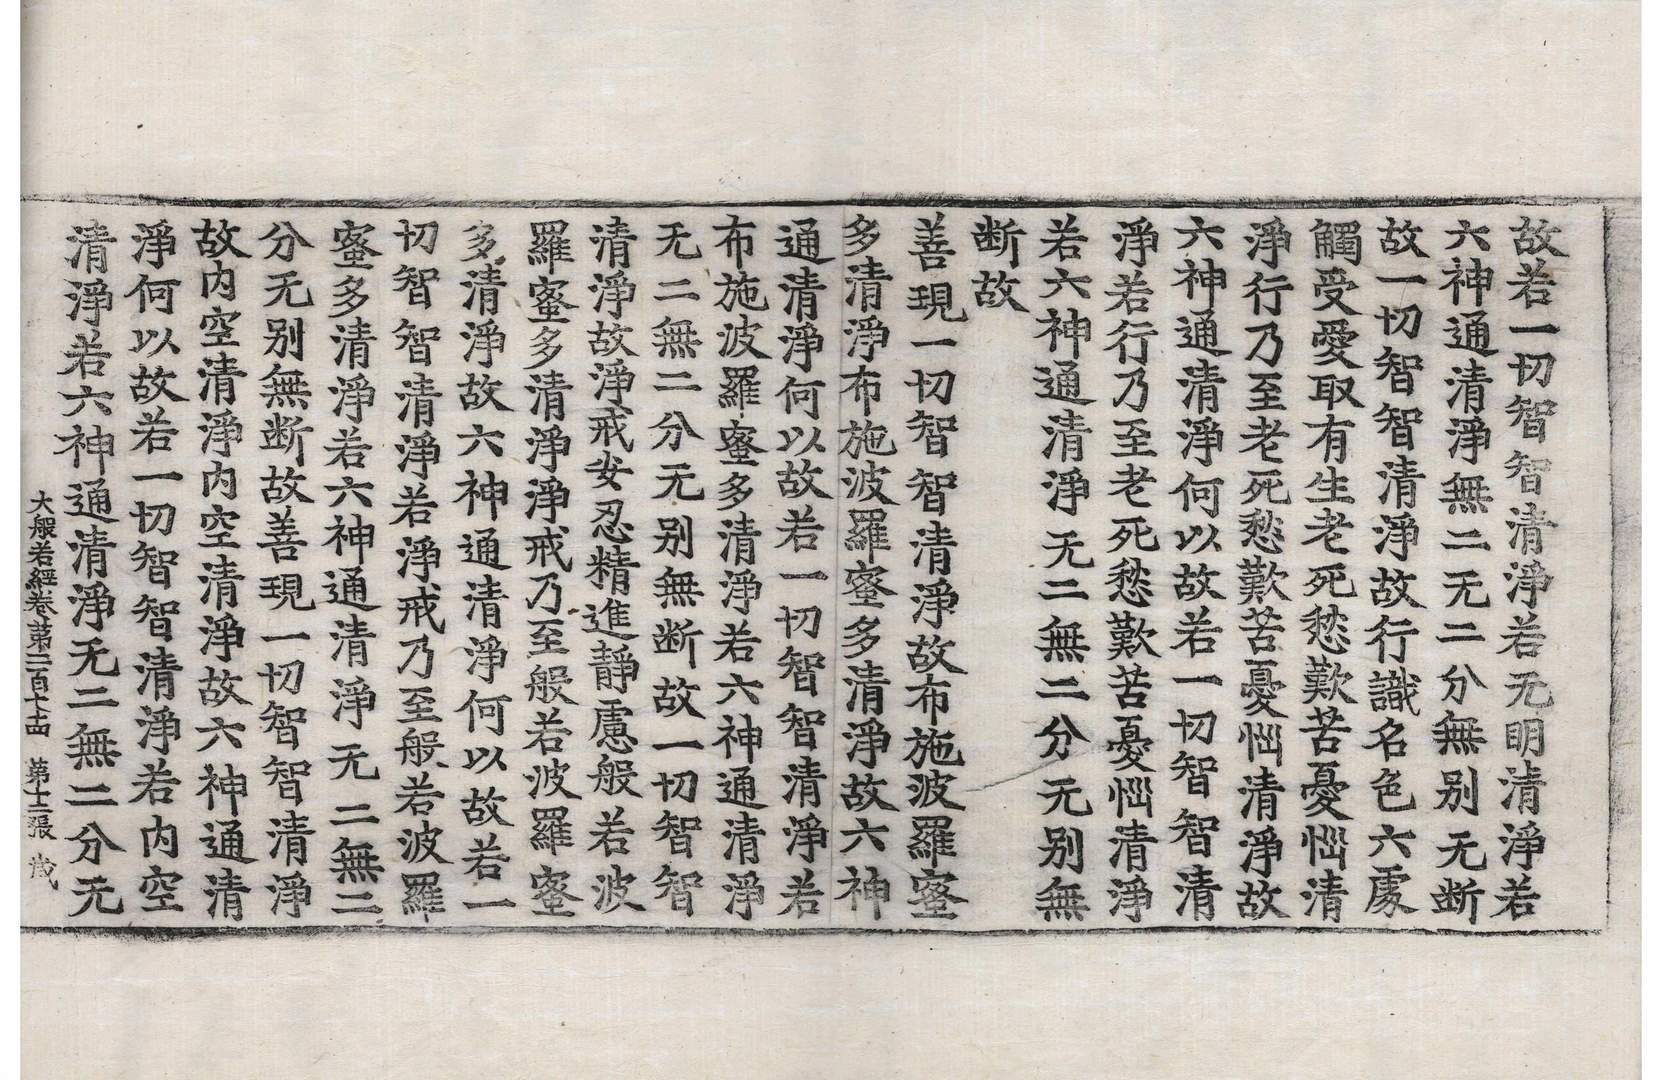 故若一切智智清淨若无明清淨若
六神通清淨無二无二分無别无断
故一切智智清淨故行識名色六處
觸受愛取有生老死愁歎苦憂惱清
淨行乃至老死愁歎苦憂惱清淨故
六神通清淨何以故若一切智智清
淨若行乃至老死愁歎苦憂惱清淨
若六神通清淨无二無二分无别無
断故
善現一切智智清淨故布施波羅蜜
多清淨布施波羅蜜多清淨故六神
通清淨何以故若一切智智清淨若
布施波羅蜜多清淨若六神通清淨
无二無二分无别無断故一切智智
清淨故淨戒安忍精進靜慮般若波
羅蜜多清淨淨戒乃至般若波羅蜜
多清淨故六神通清淨何以故若一
切智智清淨若淨戒乃至般若波羅
蜜多清淨若六神通清淨无二無二
分无别無断故善現一切智智清淨
故内空清淨内空清淨故六神通清
淨何以故若一切智智清淨若内空
清淨若六神通清淨无二無二分无
大般若經卷第二百六十四 第十二張 歲